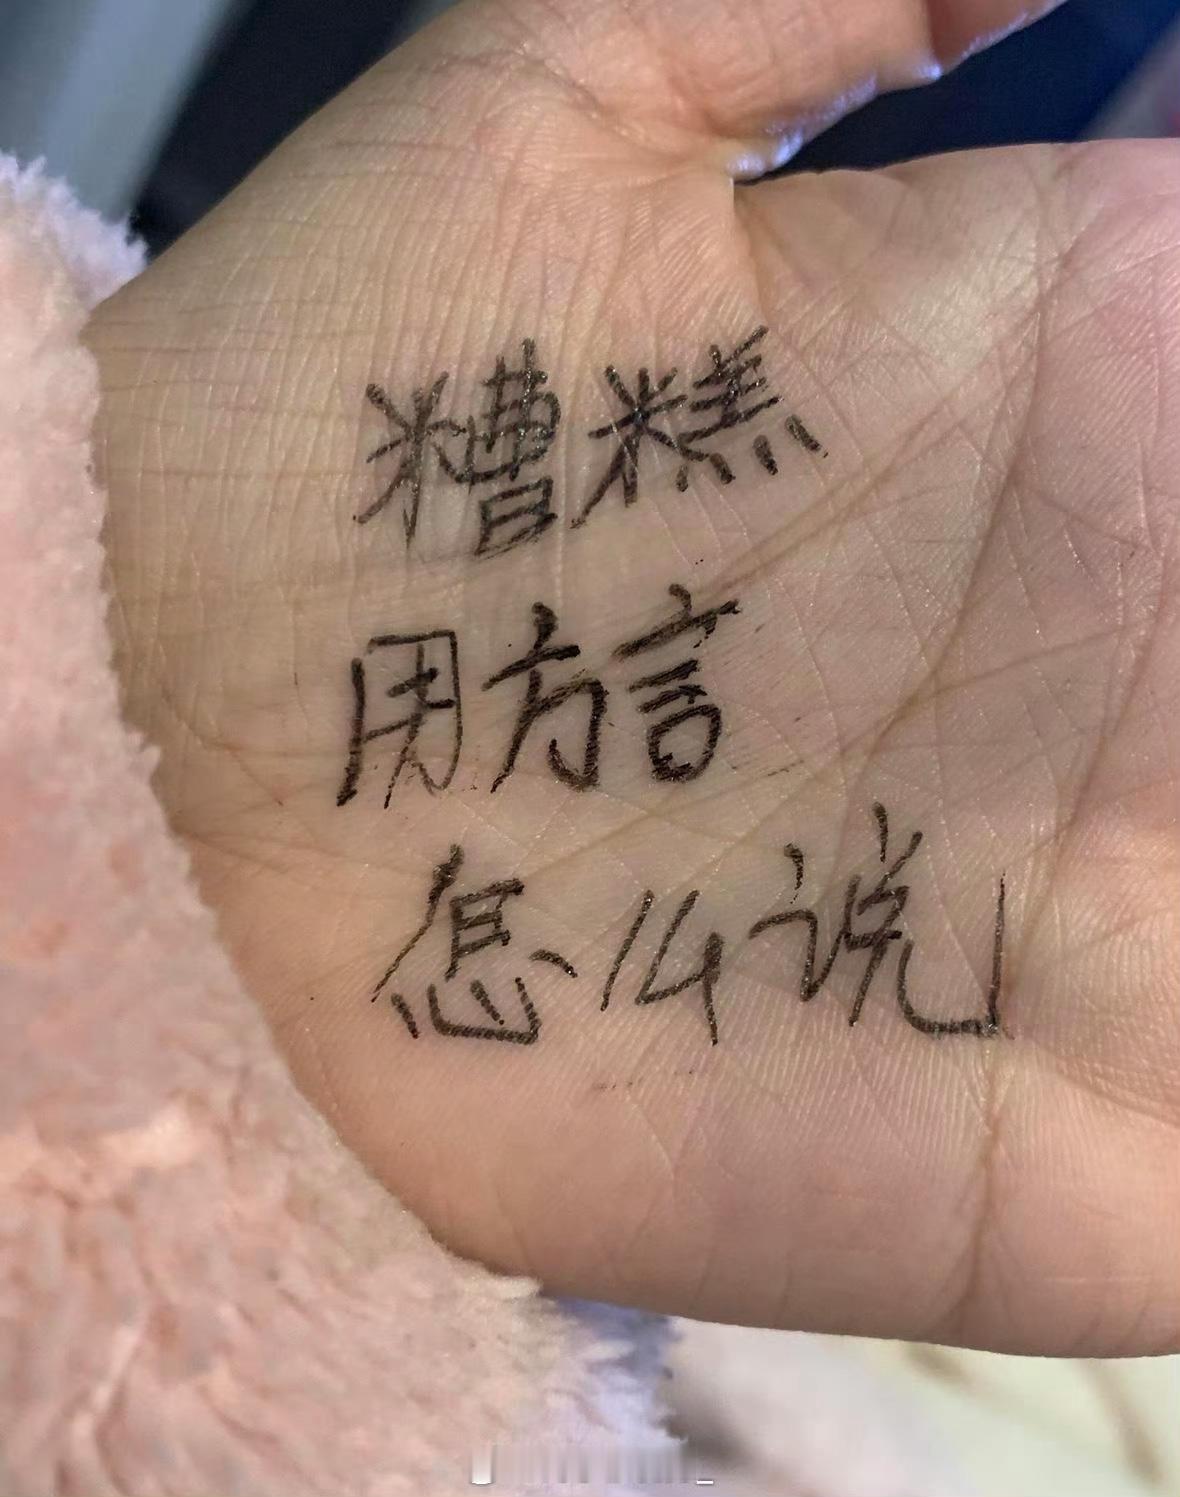 糟糕
用方言
怎么说